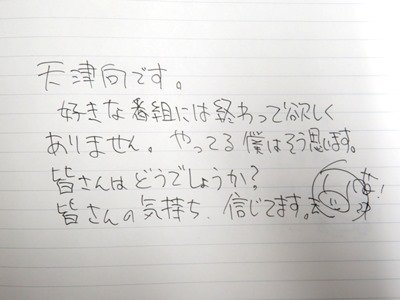 天津向です。
好きな番組には終わって欲しく
ありません。やってる僕はそう思います。
皆さんはどうでしょうか?
皆さんの気持ち、信じてます。